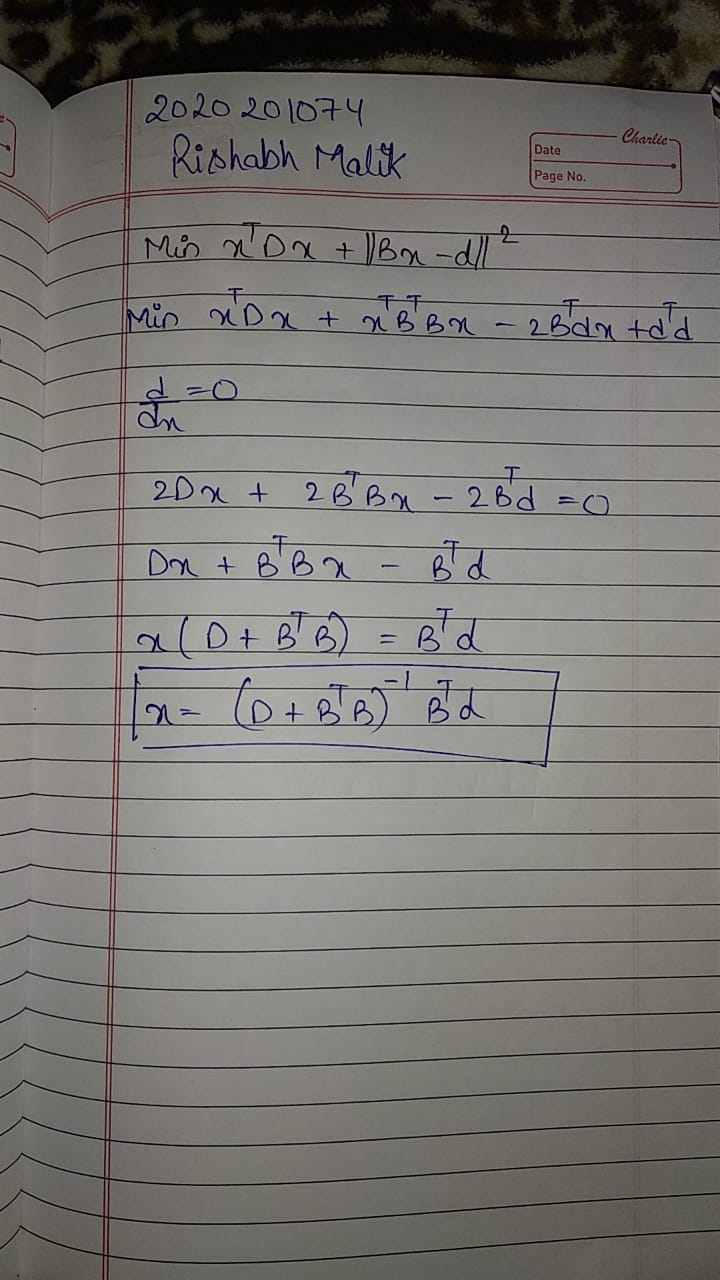 2020201074
Rishabh Malik
Charlie
Date
Page No.
Min xᵀDx + ||Bx - d||²
Min xᵀDx + xᵀBᵀBx - 2Bᵀdx + dᵀd
d/dx = 0
2Dx + 2BᵀBx - 2Bᵀd = 0
Dx + BᵀBx - Bᵀd
x(D + BᵀB) = Bᵀd
x = (D + BᵀB)⁻¹ Bᵀd